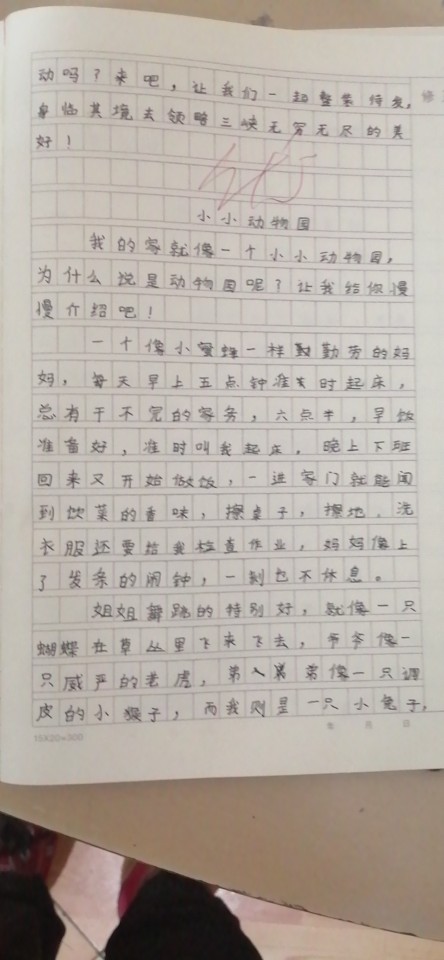 动吗？来吧，让我们一起整装待发，
身临其境去领略三峡无穷无尽的美
好！
小小动物园
我的家就像一个小小动物园，
为什么说是动物园呢？让我给你慢
慢介绍吧！
一个像小蜜蜂一样勤劳的妈
妈，每天早上五点钟准时起床，
总有干不完的家务，六点半，早饭
准备好，准时叫我起床。晚上下班
回来又开始做饭，一进家门就能闻
到饮菜的香味，擦桌子，擦地，洗
衣服还要给我检查作业，妈妈像上
了发条的闹钟，一刻也不休息。
姐姐舞跳的特别好，就像一只
蝴蝶在草丛里飞来飞去，爷爷像一
只威严的老虎，弟弟像一只调
皮的小猴子，而我则是一只小兔子，
15X20=300
年 月 日